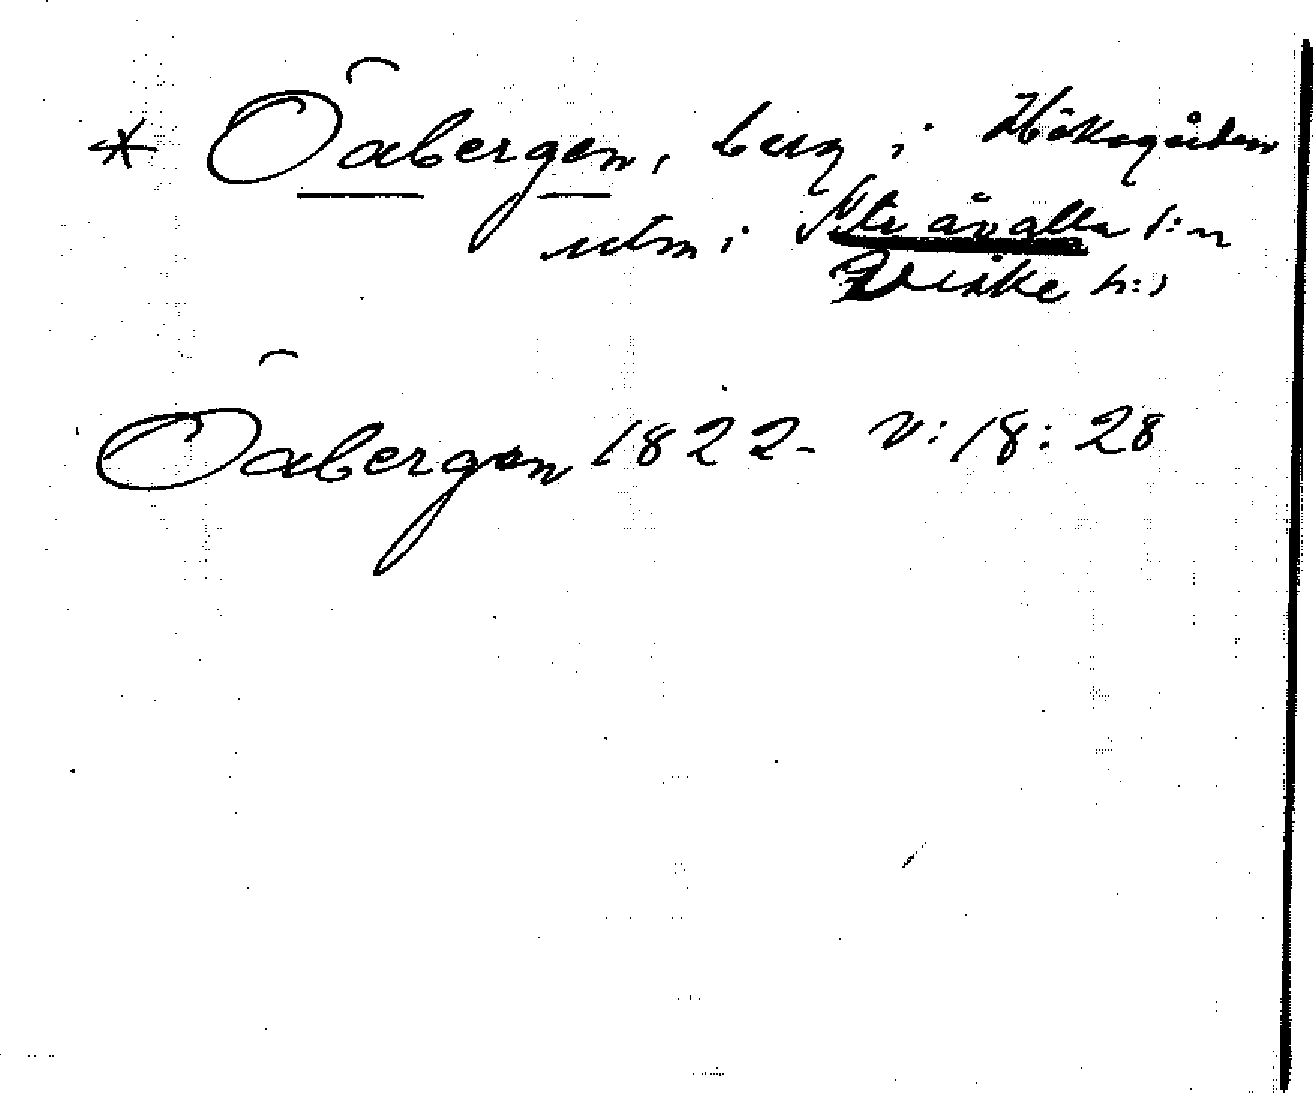 * Öabergen, berg i Hökagården
utm i Stråvalla s:n
Viske h:d
Öabergen 1822 - V:18:28